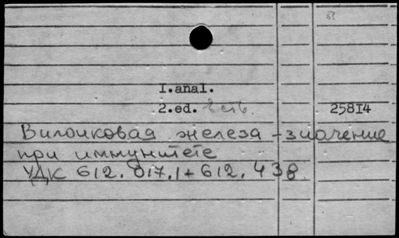 1.anal.
2.ed. 258I4
Вилочковая железа - значение
при иммунитете
УДК 612.017.1+612.438